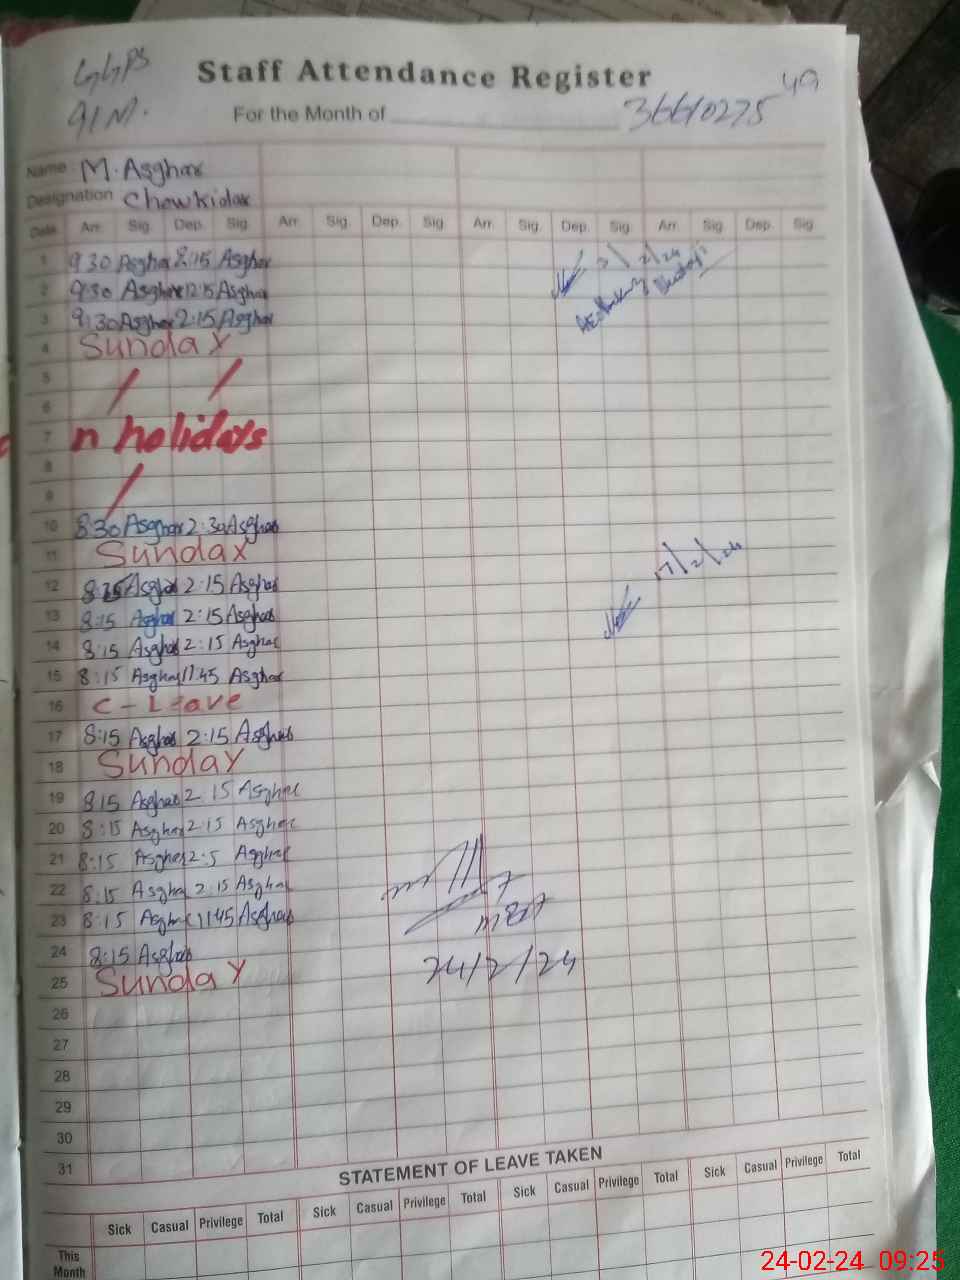 GGPS
91 M.
Staff Attendance Register
49
For the Month of
36610275
Name M. Asghar
Designation Chowkidar
Date Arr. Sig. Dep. Sig. Arr. Sig. Dep. Sig. Arr. Sig. Dep. Sig. Arr. Sig. Dep. Sig.
1 9 30 Asghar 2:15 Asghar
2 9:30 Asghar 12:15 Asghar
3 9:30 Asghar 2:15 Asghar
4 Sunday
5
6
7 n holidays
8
9
10 8:30 Asghar 2:30 Asghar
11 Sunday
12 8:15 Asghar 2:15 Asghar
17/2/24
13 8:15 Asghar 2:15 Asghar
14 8:15 Asghar 2:15 Asghar
15 8:15 Asghar 11:45 Asghar
16 C-Leave
17 8:15 Asghar 2:15 Asghar
18 Sunday
19 8 15 Asghar 2 15 Asghar
20 8:15 Asghar 2:15 Asghar
21 8:15 Asghar 2:5 Asghar
22 8:15 Asghar 2:15 Asghar
23 8:15 Asghar 11:45 Asghar
24 8:15 Asghar
24/2/24
25 Sunday
26
27
28
29
30
31
STATEMENT OF LEAVE TAKEN
Sick Casual Privilege Total Sick Casual Privilege Total Sick Casual Privilege Total Sick Casual Privilege Total
This Month
24-02-24 09:25